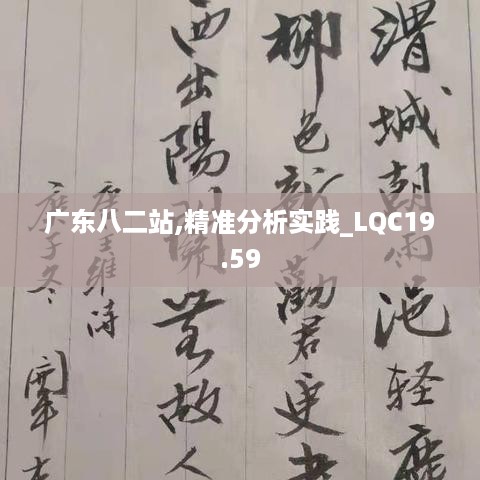 广东八二站,精准分析实践_LQC19
.59
渭城朝雨浥轻
柳色新勸君更
西出陽關無故人
唐王维诗
庚子冬